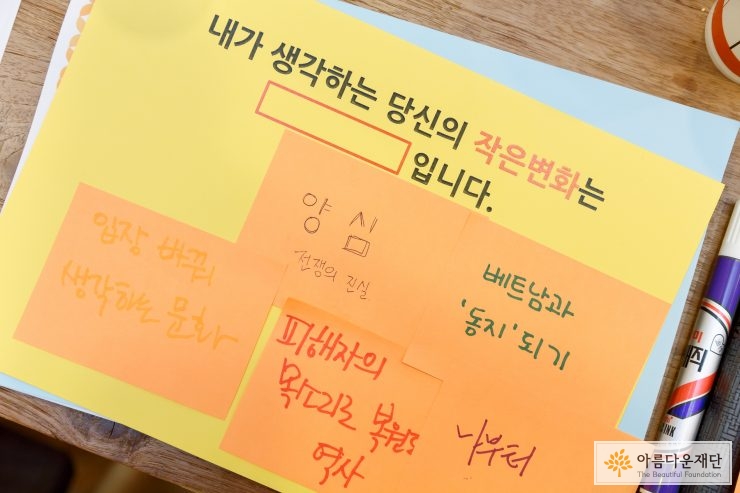 내가 생각하는 당신의 작은변화는
입니다.
양심
전쟁의 진실
입장 바꿔
생각하는 문화
베트남과
'동지'되기
피해자의
목소리로 복원된
역사
나부터
아름다운재단
The Beautiful Foundation
INK